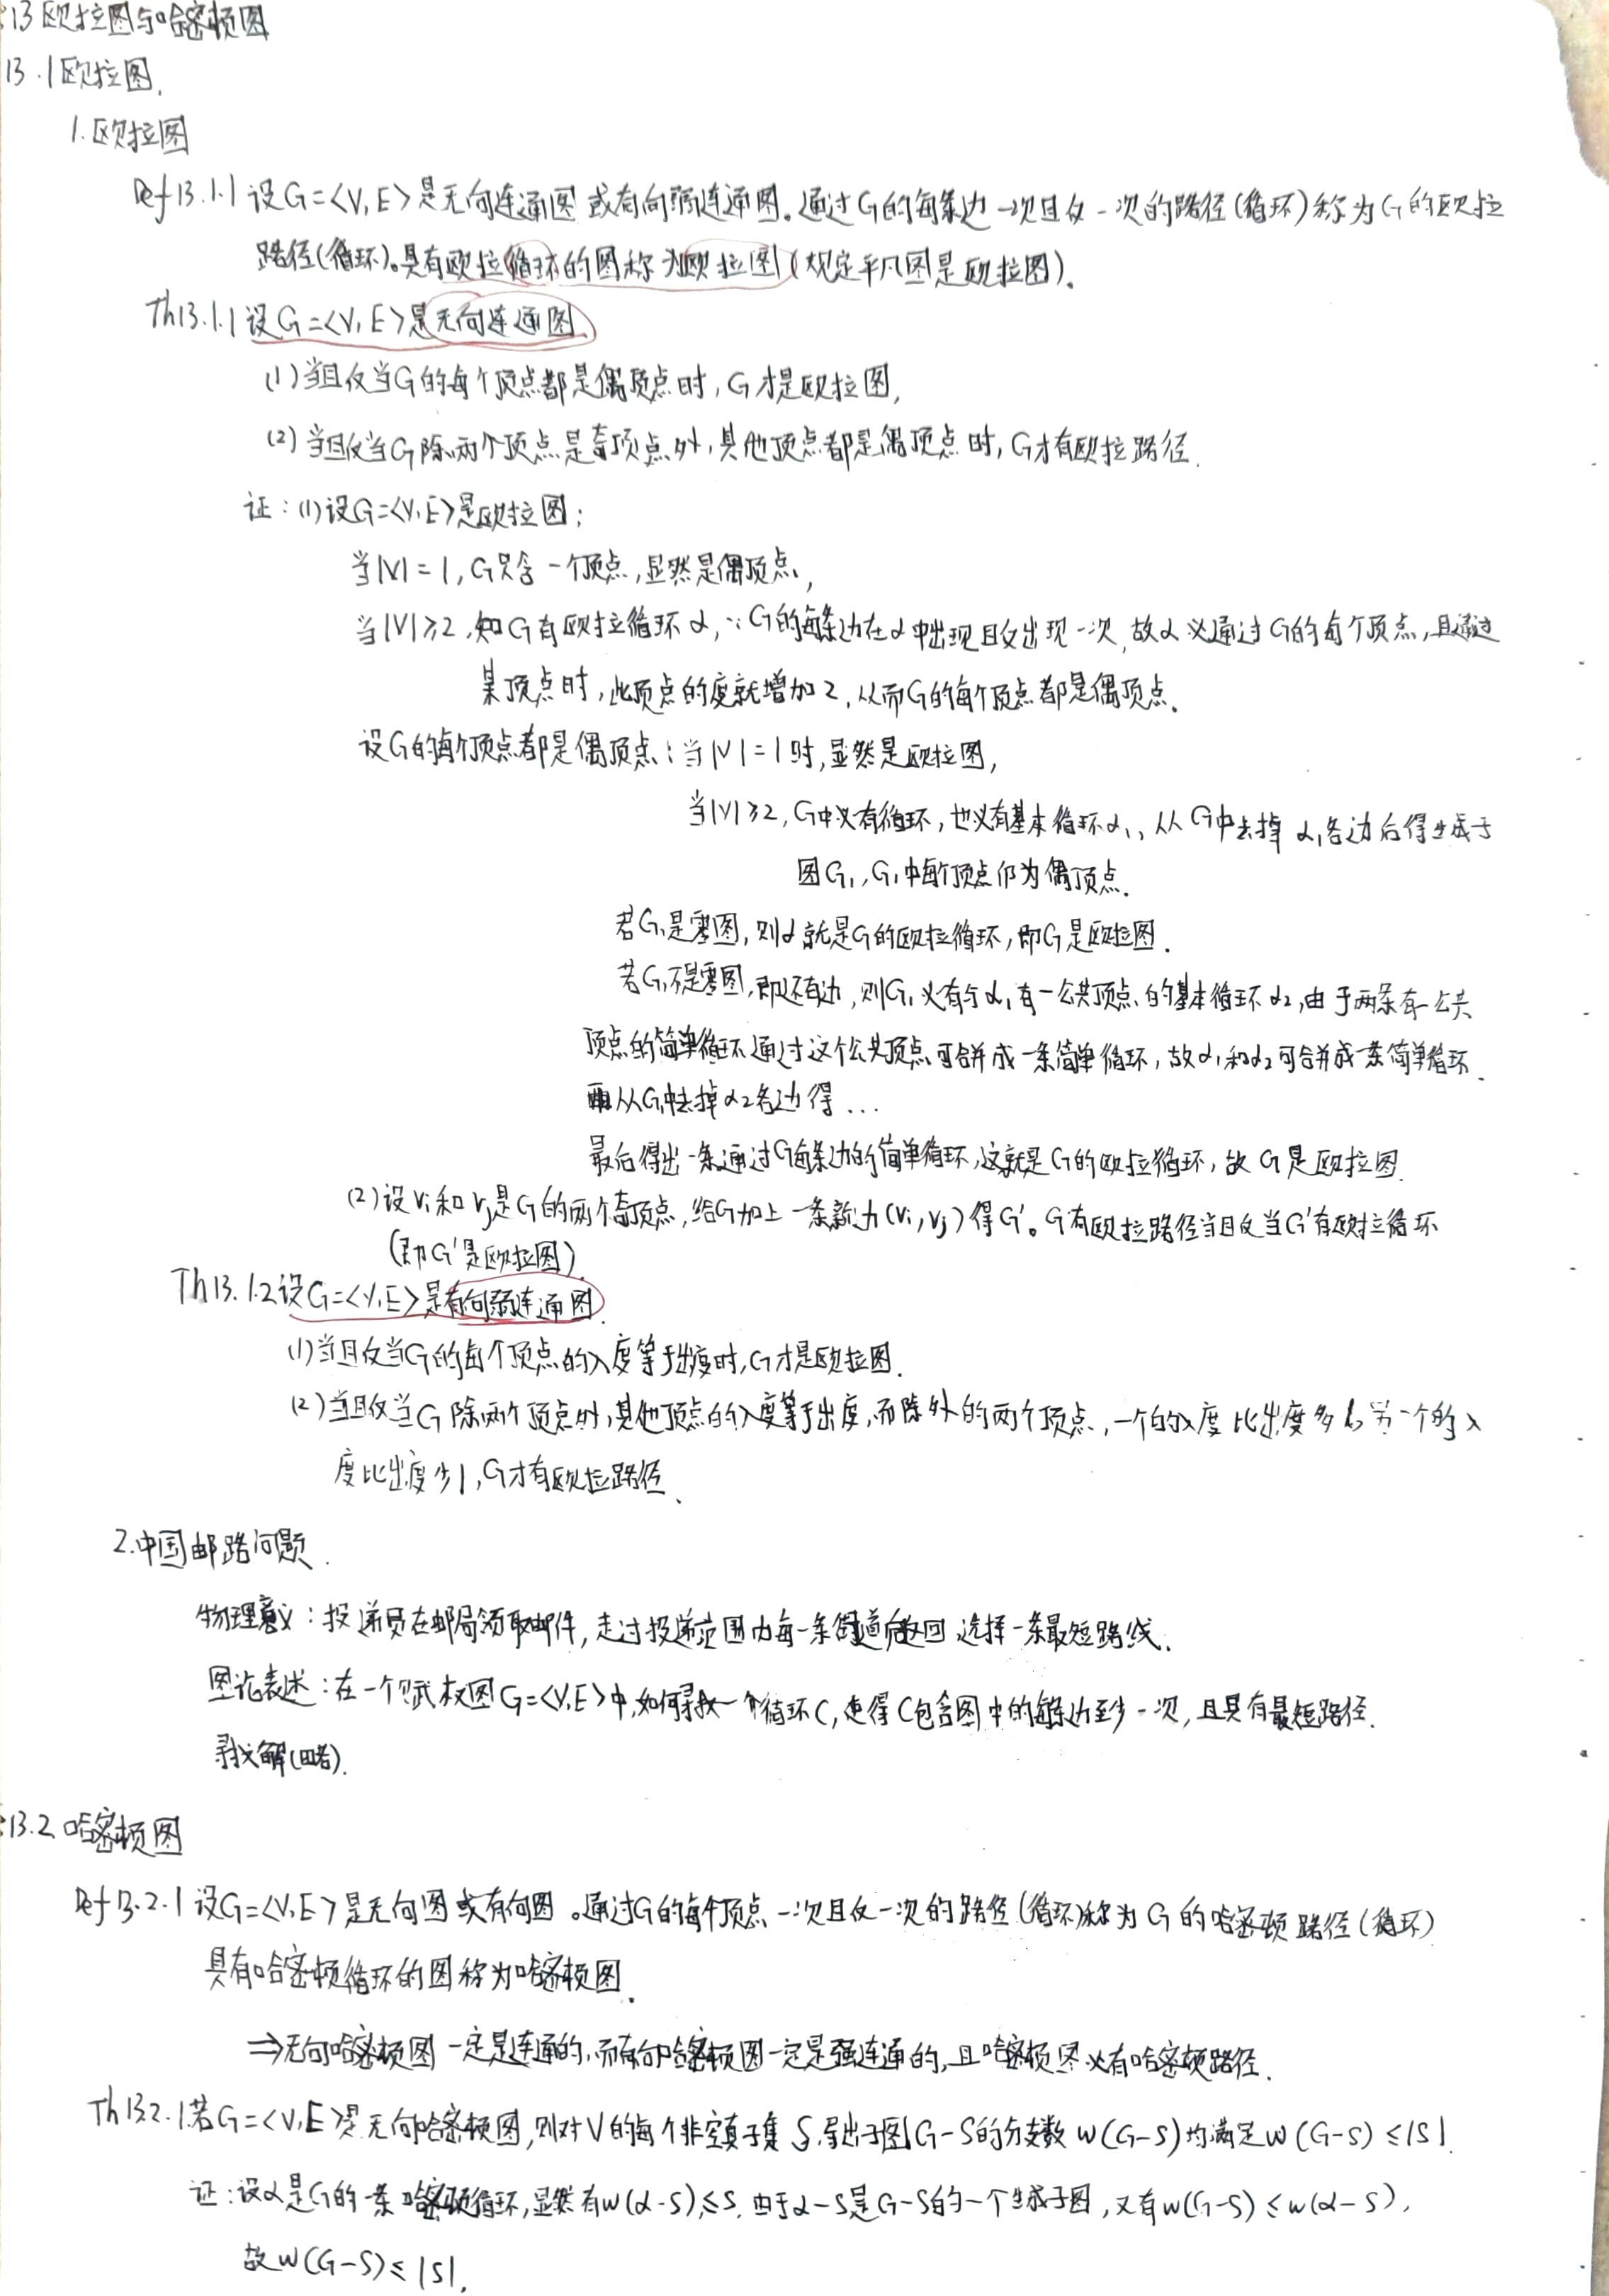 13 欧拉图与哈密顿图
13.1 欧拉图.
1. 欧拉图
Def 13.1.1 设G=<V,E>是无向连通图或有向弱连通图。通过G的每条边一次且仅一次的路径(循环)称为G的欧拉
路径(循环)。具有欧拉循环的图称为欧拉图(规定平凡图是欧拉图).
Th13.1.1 设G=<V,E>是无向连通图
(1) 当且仅当G的每个顶点都是偶顶点时, G才是欧拉图,
(2) 当且仅当G除两个顶点是奇顶点外, 其他顶点都是偶顶点时, G才有欧拉路径.
证: (1)设G=<V,E>是欧拉图:
当|V|=1, G只含一个顶点, 显然是偶顶点,
当|V|≥2, 知G有欧拉循环α, ∵G的每条边在α中出现且仅出现一次, 故α必通过G的每个顶点, 且通过
某顶点时, 此顶点的度就增加2, 从而G的每个顶点都是偶顶点.
设G的每个顶点都是偶顶点: 当|V|=1时, 显然是欧拉图,
当|V|≥2, G中必有循环, 也必有基本循环α₁, 从G中去掉α₁各边后得生成子
图G₁, G₁中每个顶点仍为偶顶点.
若G₁是零图, 则α就是G的欧拉循环, 即G是欧拉图.
若G₁不是零图, 即还有边, 则G₁必有与α₁有一公共顶点的基本循环α₂, 由于两条有一公共
顶点的简单循环通过这个公共顶点可合并成一条简单循环, 故α₁和α₂可合并成一条简单循环.
再从G₁中去掉α₂各边得...
最后得出一条通过G每条边的简单循环, 这就是G的欧拉循环, 故G是欧拉图.
(2) 设vi和vj是G的两个奇顶点, 给G加上一条新边(vi, vj)得G'。G有欧拉路径当且仅当G'有欧拉循环
(即G'是欧拉图).
Th13.1.2 设G=<V,E>是有向弱连通图.
(1) 当且仅当G的每个顶点的入度等于出度时, G才是欧拉图.
(2) 当且仅当G除两个顶点外, 其他顶点的入度等于出度, 而除外的两个顶点, 一个的入度比出度多1, 另一个的入
度比出度少1, G才有欧拉路径.
2. 中国邮路问题.
物理意义: 投递员在邮局领取邮件, 走过投递范围内每一条街道后返回 选择一条最短路线.
图论表述: 在一个赋权图G=<V,E>中, 如何寻找一个循环C, 使得C包含图中的每条边至少一次, 且具有最短路径.
寻找解(略).
13.2 哈密顿图
Def 13.2.1 设G=<V,E>是无向图或有向图。通过G的每个顶点一次且仅一次的路径(循环)称为G的哈密顿路径(循环)
具有哈密顿循环的图称为哈密顿图.
⇒无向哈密顿图一定是连通的, 而有向哈密顿图一定是强连通的, 且哈密顿图必有哈密顿路径.
Th13.2.1 若G=<V,E>是无向哈密顿图, 则对V的每个非空真子集S, 导出子图G-S的分支数w(G-S)均满足w(G-S)≤|S|.
证: 设α是G的一条哈密顿循环, 显然有w(α-S)≤S. 由于α-S是G-S的一个生成子图, 又有w(G-S)≤w(α-S),
故w(G-S)≤|S|.